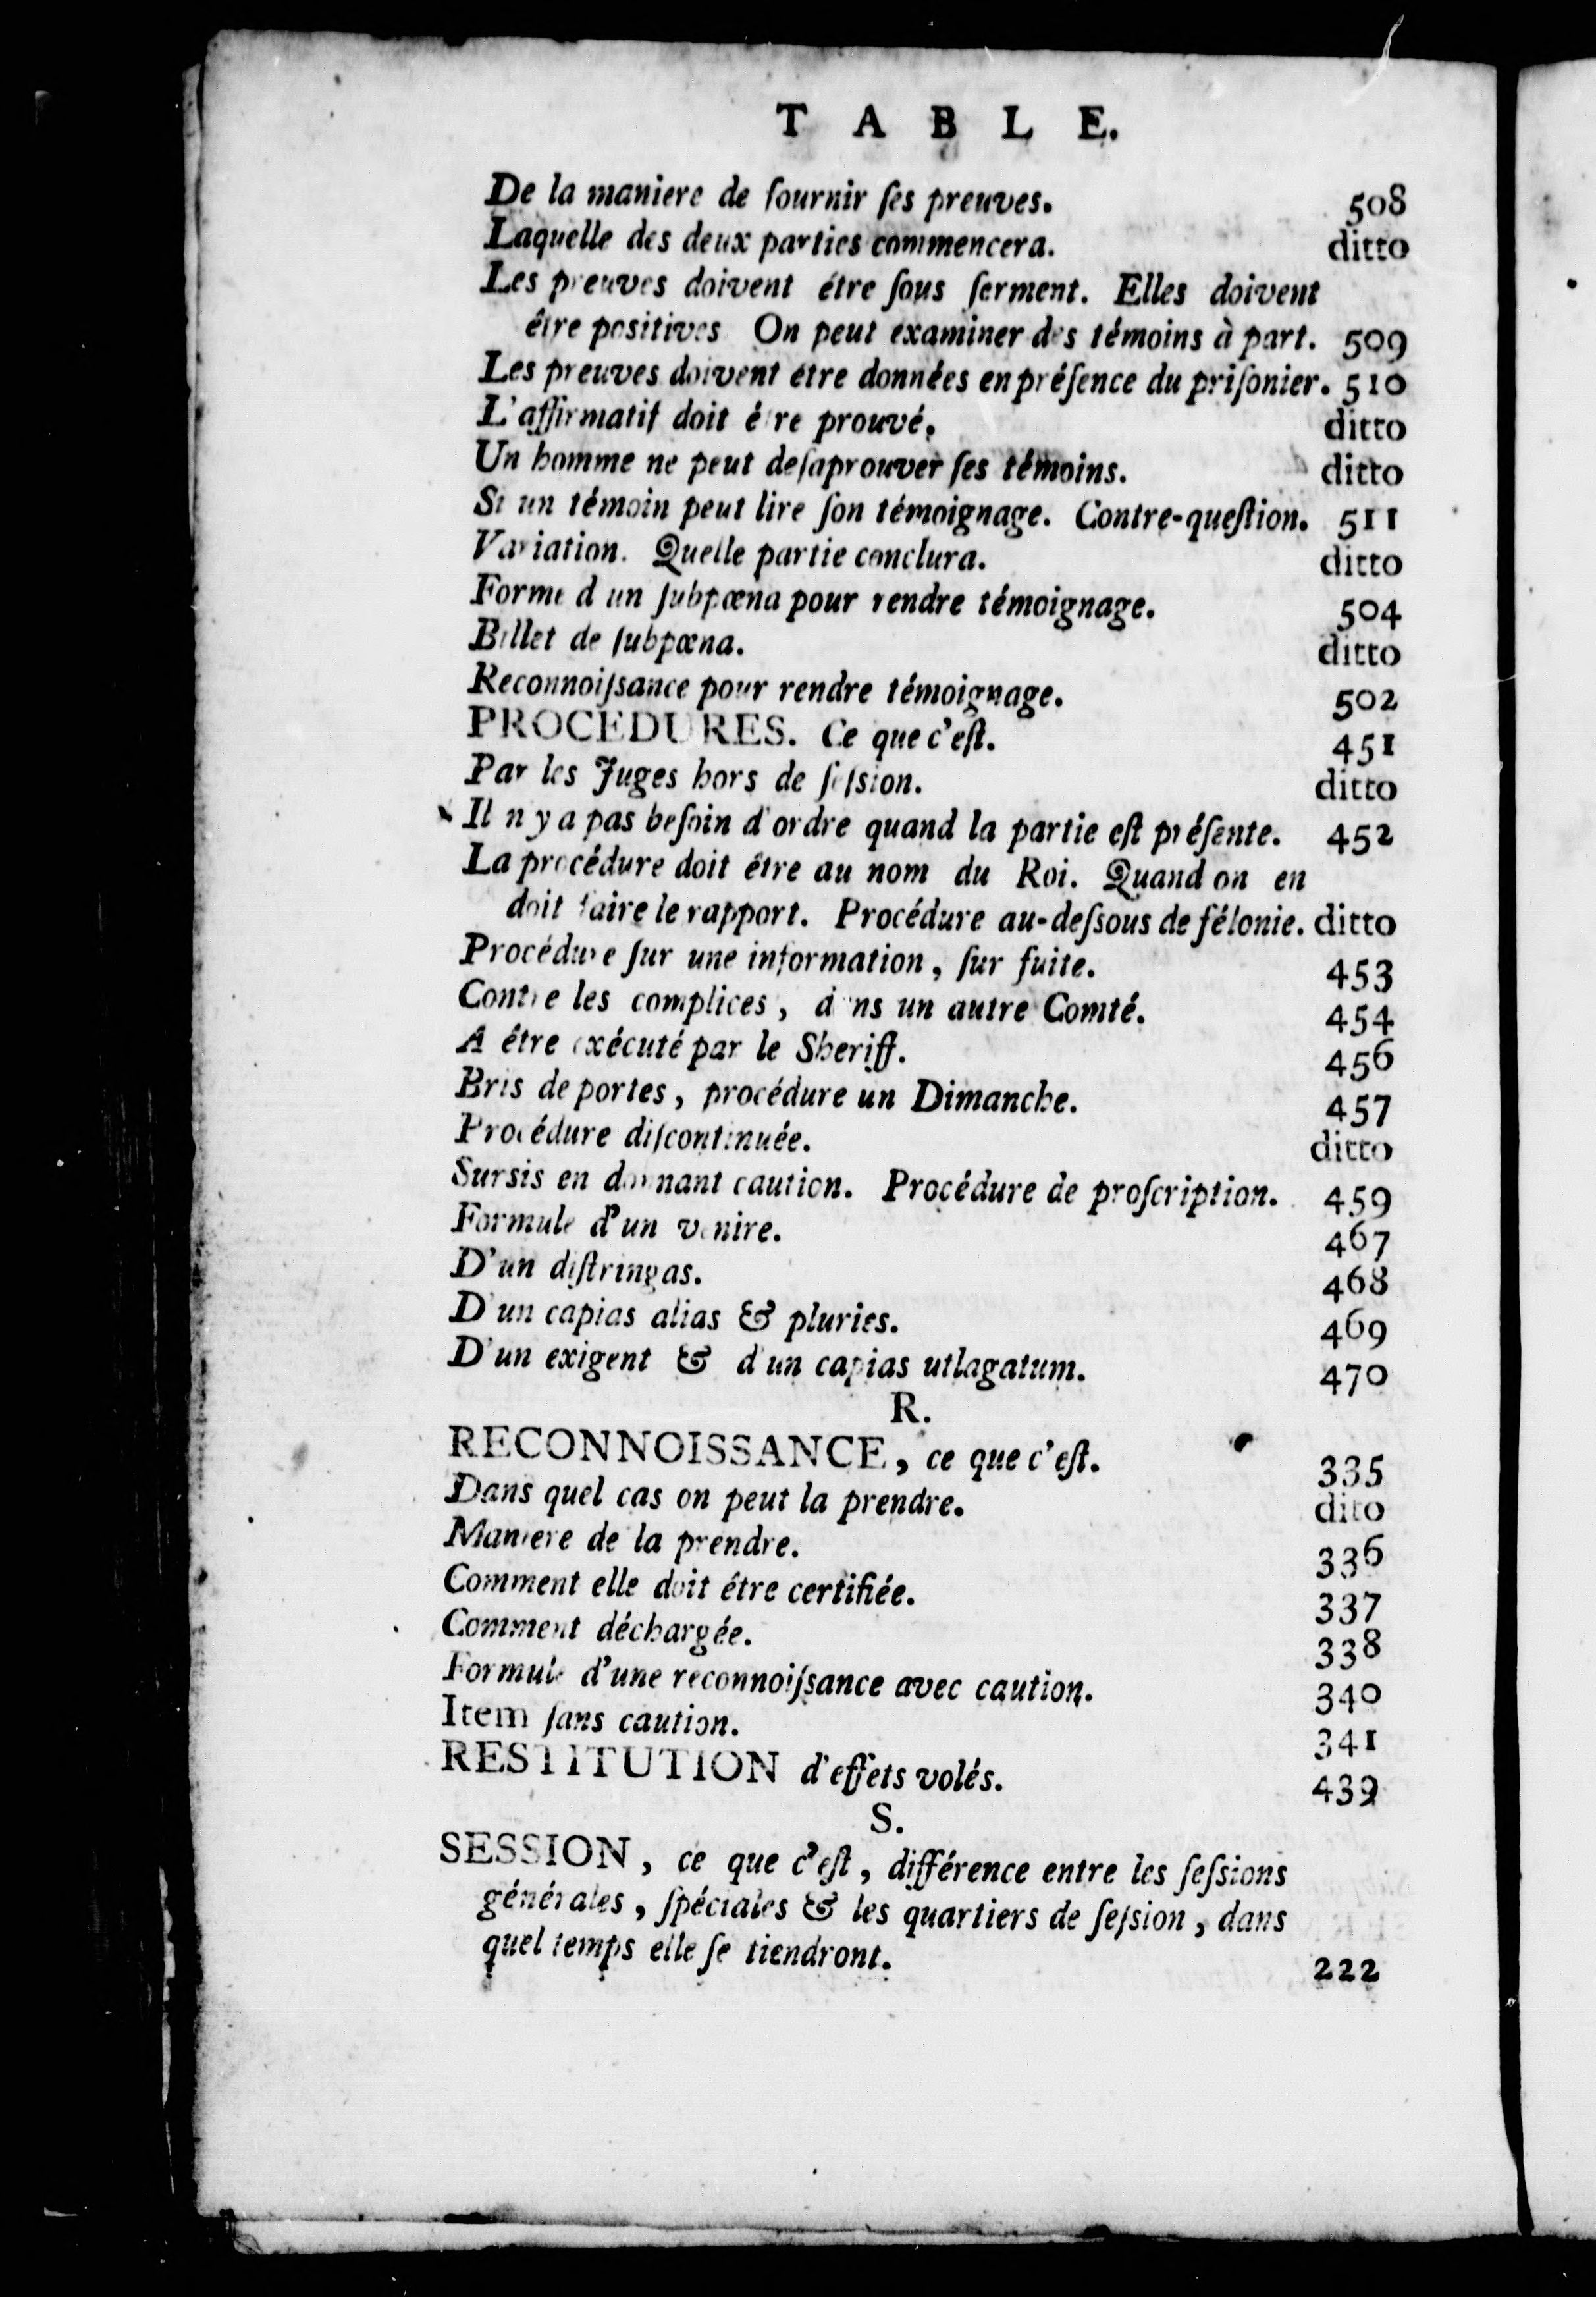 TABLE.
De la maniere de fournir ſes preuves. 508
Laquelle des deux parties commencera. ditto
Les preuves doivent étre ſous ſerment. Elles doivent
être positives On peut examiner des témoins à part. 509
Les preuves doivent etre données en préſence du priſonier. 510
L'affirmatif doit étre prouvé. ditto
Un homme ne peut deſaprouver ſes témoins. ditto
Si un témoin peut lire ſon témoignage. Contre-queſtion. 511
Variation. Quelle partie conclura. ditto
Forme d'un ſubpœna pour rendre témoignage. 504
Billet de ſubpœna. ditto
Reconnoiſsance pour rendre témoignage. 502
PROCEDURES. Ce que c'eſt. 451
Par les Juges hors de ſeſsion. ditto
Il n'y a pas beſoin d'ordre quand la partie eſt préſente. 452
La procédure doit être au nom du Roi. Quand on en
doit faire le rapport. Procédure au-deſsous de félonie. ditto
Procédure ſur une information, ſur ſuite. 453
Contre les complices, dans un autre Comté. 454
A être exécuté par le Sheriff. 456
Bris de portes, procédure un Dimanche. 457
Procédure diſcontinuée. ditto
Sursis en donnant caution. Procédure de proſcription. 459
Formule d'un venire. 467
D'un diſtringas. 468
D'un capias alias & pluries. 469
D'un exigent & d'un capias utlagatum. 470
R.
RECONNOISSANCE, ce que c'eſt. 335
Dans quel cas on peut la prendre. dito
Maniere de la prendre. 336
Comment elle doit étre certifiée. 337
Comment déchargée. 338
Formule d'une reconnoiſsance avec caution. 340
Item ſans caution. 341
RESTITUTION d'effets volés. 439
S.
SESSION, ce que c'eſt, différence entre les ſeſsions
générales, ſpéciales & les quartiers de ſeſsion, dans
quel temps elle ſe tiendront. 222